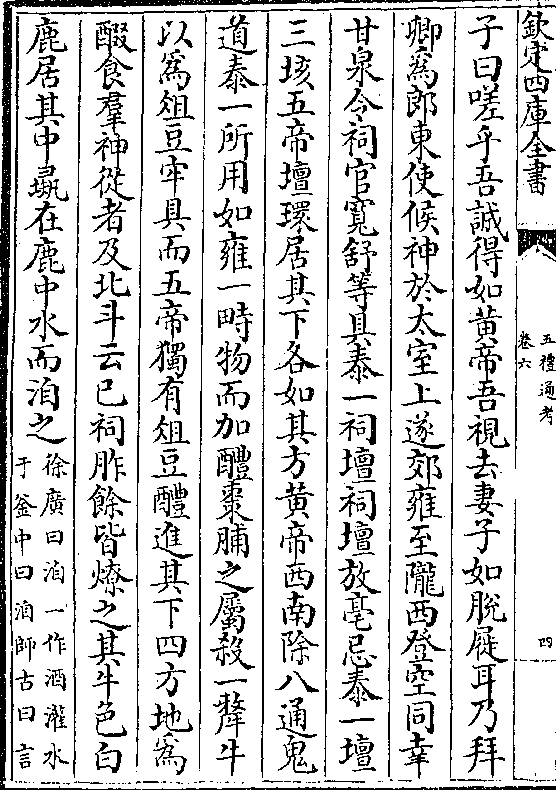 欽定四庫全書
五禮通考
卷六
四
子曰嗟乎吾誠得如黄帝吾視去妻子如脫屣耳乃拜
卿爲郎東使候神於太室上遂郊雍至隴西登空同幸
甘泉令祠官寛舒等具泰一祠壇祠壇放亳忌泰一壇
三垓五帝壇環居其下各如其方黄帝西南除八通鬼
道泰一所用如雍一畤物而加醴棗脯之屬殺一犛牛
以爲俎豆牢具而五帝獨有俎豆醴進其下四方地爲
醊食羣神從者及北斗云已祠胙餘皆燎之其牛色白
鹿居其中彘在鹿中水而洎之
徐廣曰洎一作酒灌水
于釜中曰洎師古曰言